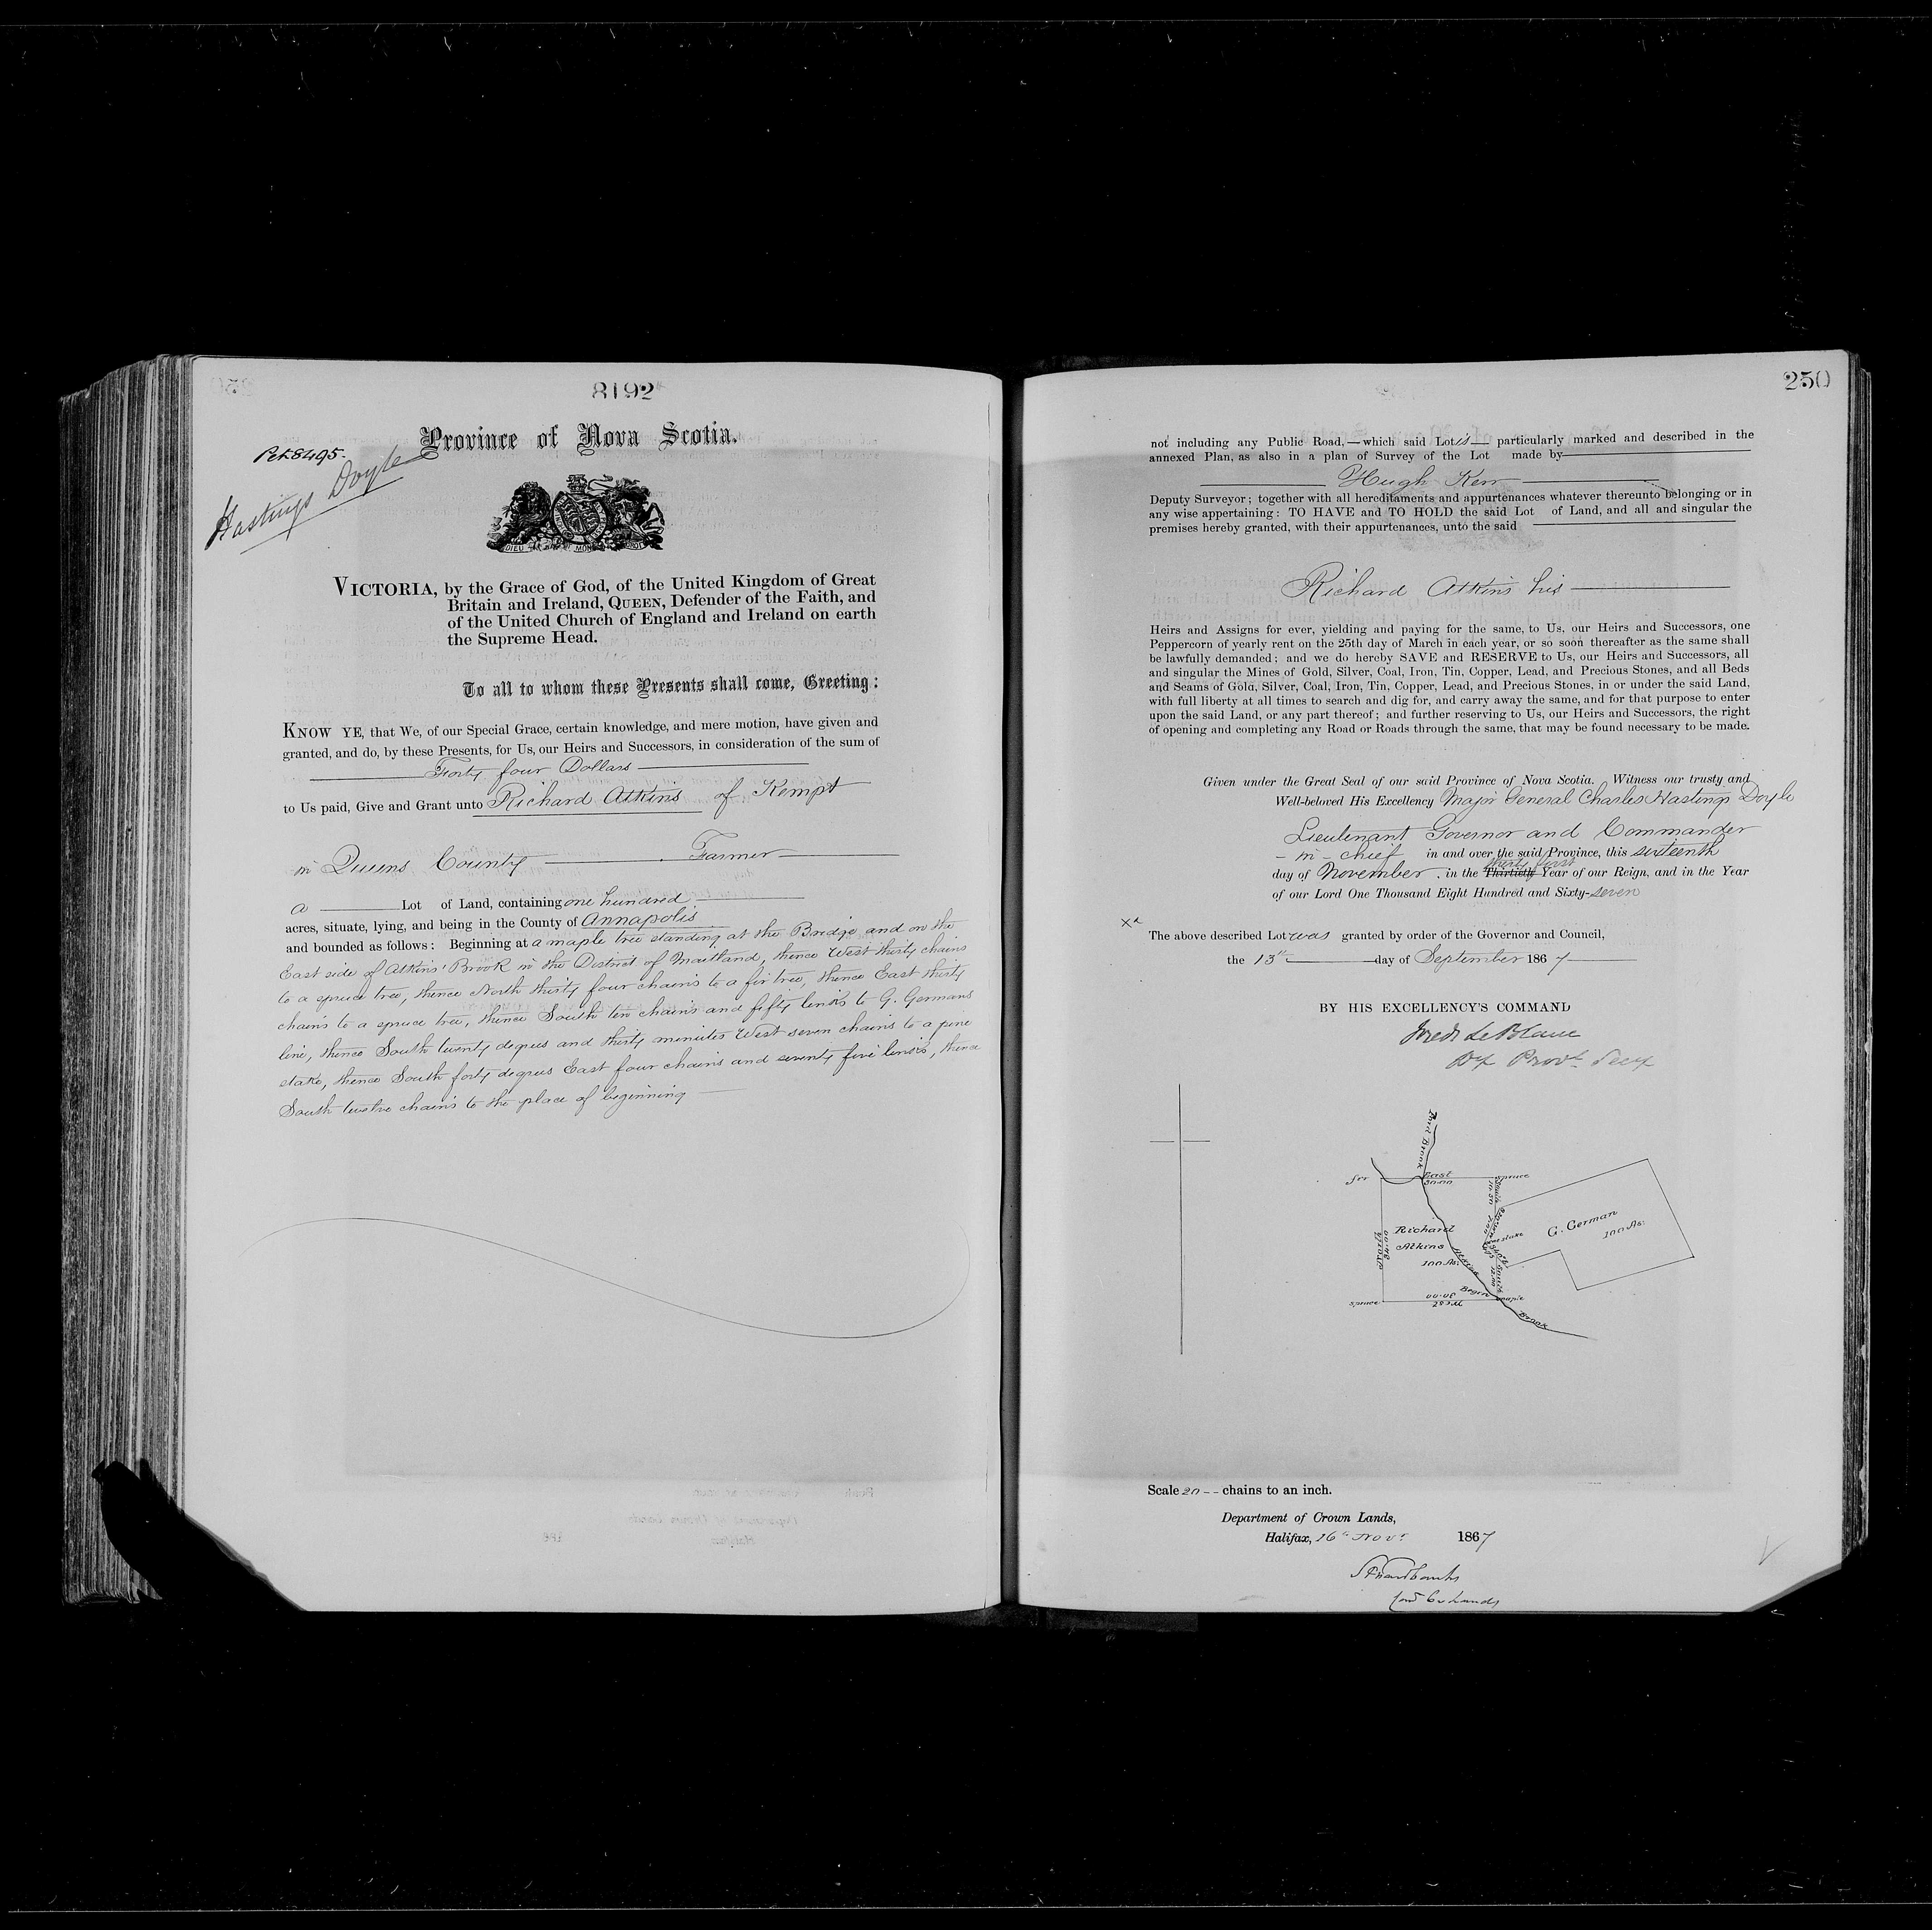 8192
Province of Nova Scotia.
Pet 8495.
Hastings Doyle
DIEU ET MON DROIT
VICTORIA, by the Grace of God, of the United Kingdom of Great
Britain and Ireland, QUEEN, Defender of the Faith, and
of the United Church of England and Ireland on earth
the Supreme Head.
To all to whom these Presents shall come, Greeting:
KNOW YE, that We, of our Special Grace, certain knowledge, and mere motion, have given and
granted, and do, by these Presents, for Us, our Heirs and Successors, in consideration of the sum of
Forty four Dollars
to Us paid, Give and Grant unto Richard Atkins of Kempt
in Queens County Farmer
a Lot of Land, containing one hundred
acres, situate, lying, and being in the County of Annapolis
and bounded as follows: Beginning at a maple tree standing at the Bridge and on the
East side of Atkins' Brook in the District of Maitland, thence West thirty chains
to a spruce tree, thence North thirty four chains to a fir tree, thence East thirty
chains to a spruce tree, thence South ten chains and fifty links to G. Germans
line, thence South twenty degrees and thirty minutes West seven chains to a pine
stake, thence South forty degrees East four chains and seventy five links, thence
South twelve chains to the place of beginning
250
not including any Public Road,—which said Lot is particularly marked and described in the
annexed Plan, as also in a plan of Survey of the Lot made by
Hugh Kerr
Deputy Surveyor; together with all hereditaments and appurtenances whatever thereunto belonging or in
any wise appertaining: TO HAVE and TO HOLD the said Lot of Land, and all and singular the
premises hereby granted, with their appurtenances, unto the said
Richard Atkins his
Heirs and Assigns for ever, yielding and paying for the same, to Us, our Heirs and Successors, one
Peppercorn of yearly rent on the 25th day of March in each year, or so soon thereafter as the same shall
be lawfully demanded; and we do hereby SAVE and RESERVE to Us, our Heirs and Successors, all
and singular the Mines of Gold, Silver, Coal, Iron, Tin, Copper, Lead, and Precious Stones, and all Beds
and Seams of Gold, Silver, Coal, Iron, Tin, Copper, Lead, and Precious Stones, in or under the said Land,
with full liberty at all times to search and dig for, and carry away the same, and for that purpose to enter
upon the said Land, or any part thereof; and further reserving to Us, our Heirs and Successors, the right
of opening and completing any Road or Roads through the same, that may be found necessary to be made.
Given under the Great Seal of our said Province of Nova Scotia. Witness our trusty and
Well-beloved His Excellency Major General Charles Hastings Doyle
Lieutenant Governor and Commander
- in - chief in and over the said Province, this sixteenth
thirty first
day of November in the Thirtieth Year of our Reign, and in the Year
of our Lord One Thousand Eight Hundred and Sixty-seven
The above described Lot was granted by order of the Governor and Council,
the 13th day of September 1867
BY HIS EXCELLENCY'S COMMAND
Fredk LeBlanc
Dy Provl Secy
Brook
fir East 30.00 spruce
North 34.00
Richard
Atkins
100 As.
G. German
100 As.
pine stake
Atkins
South 12.00
spruce West 30.00 Begin maple
Brook
Scale 20 -- chains to an inch.
Department of Crown Lands,
Halifax, 16th Novr 1867